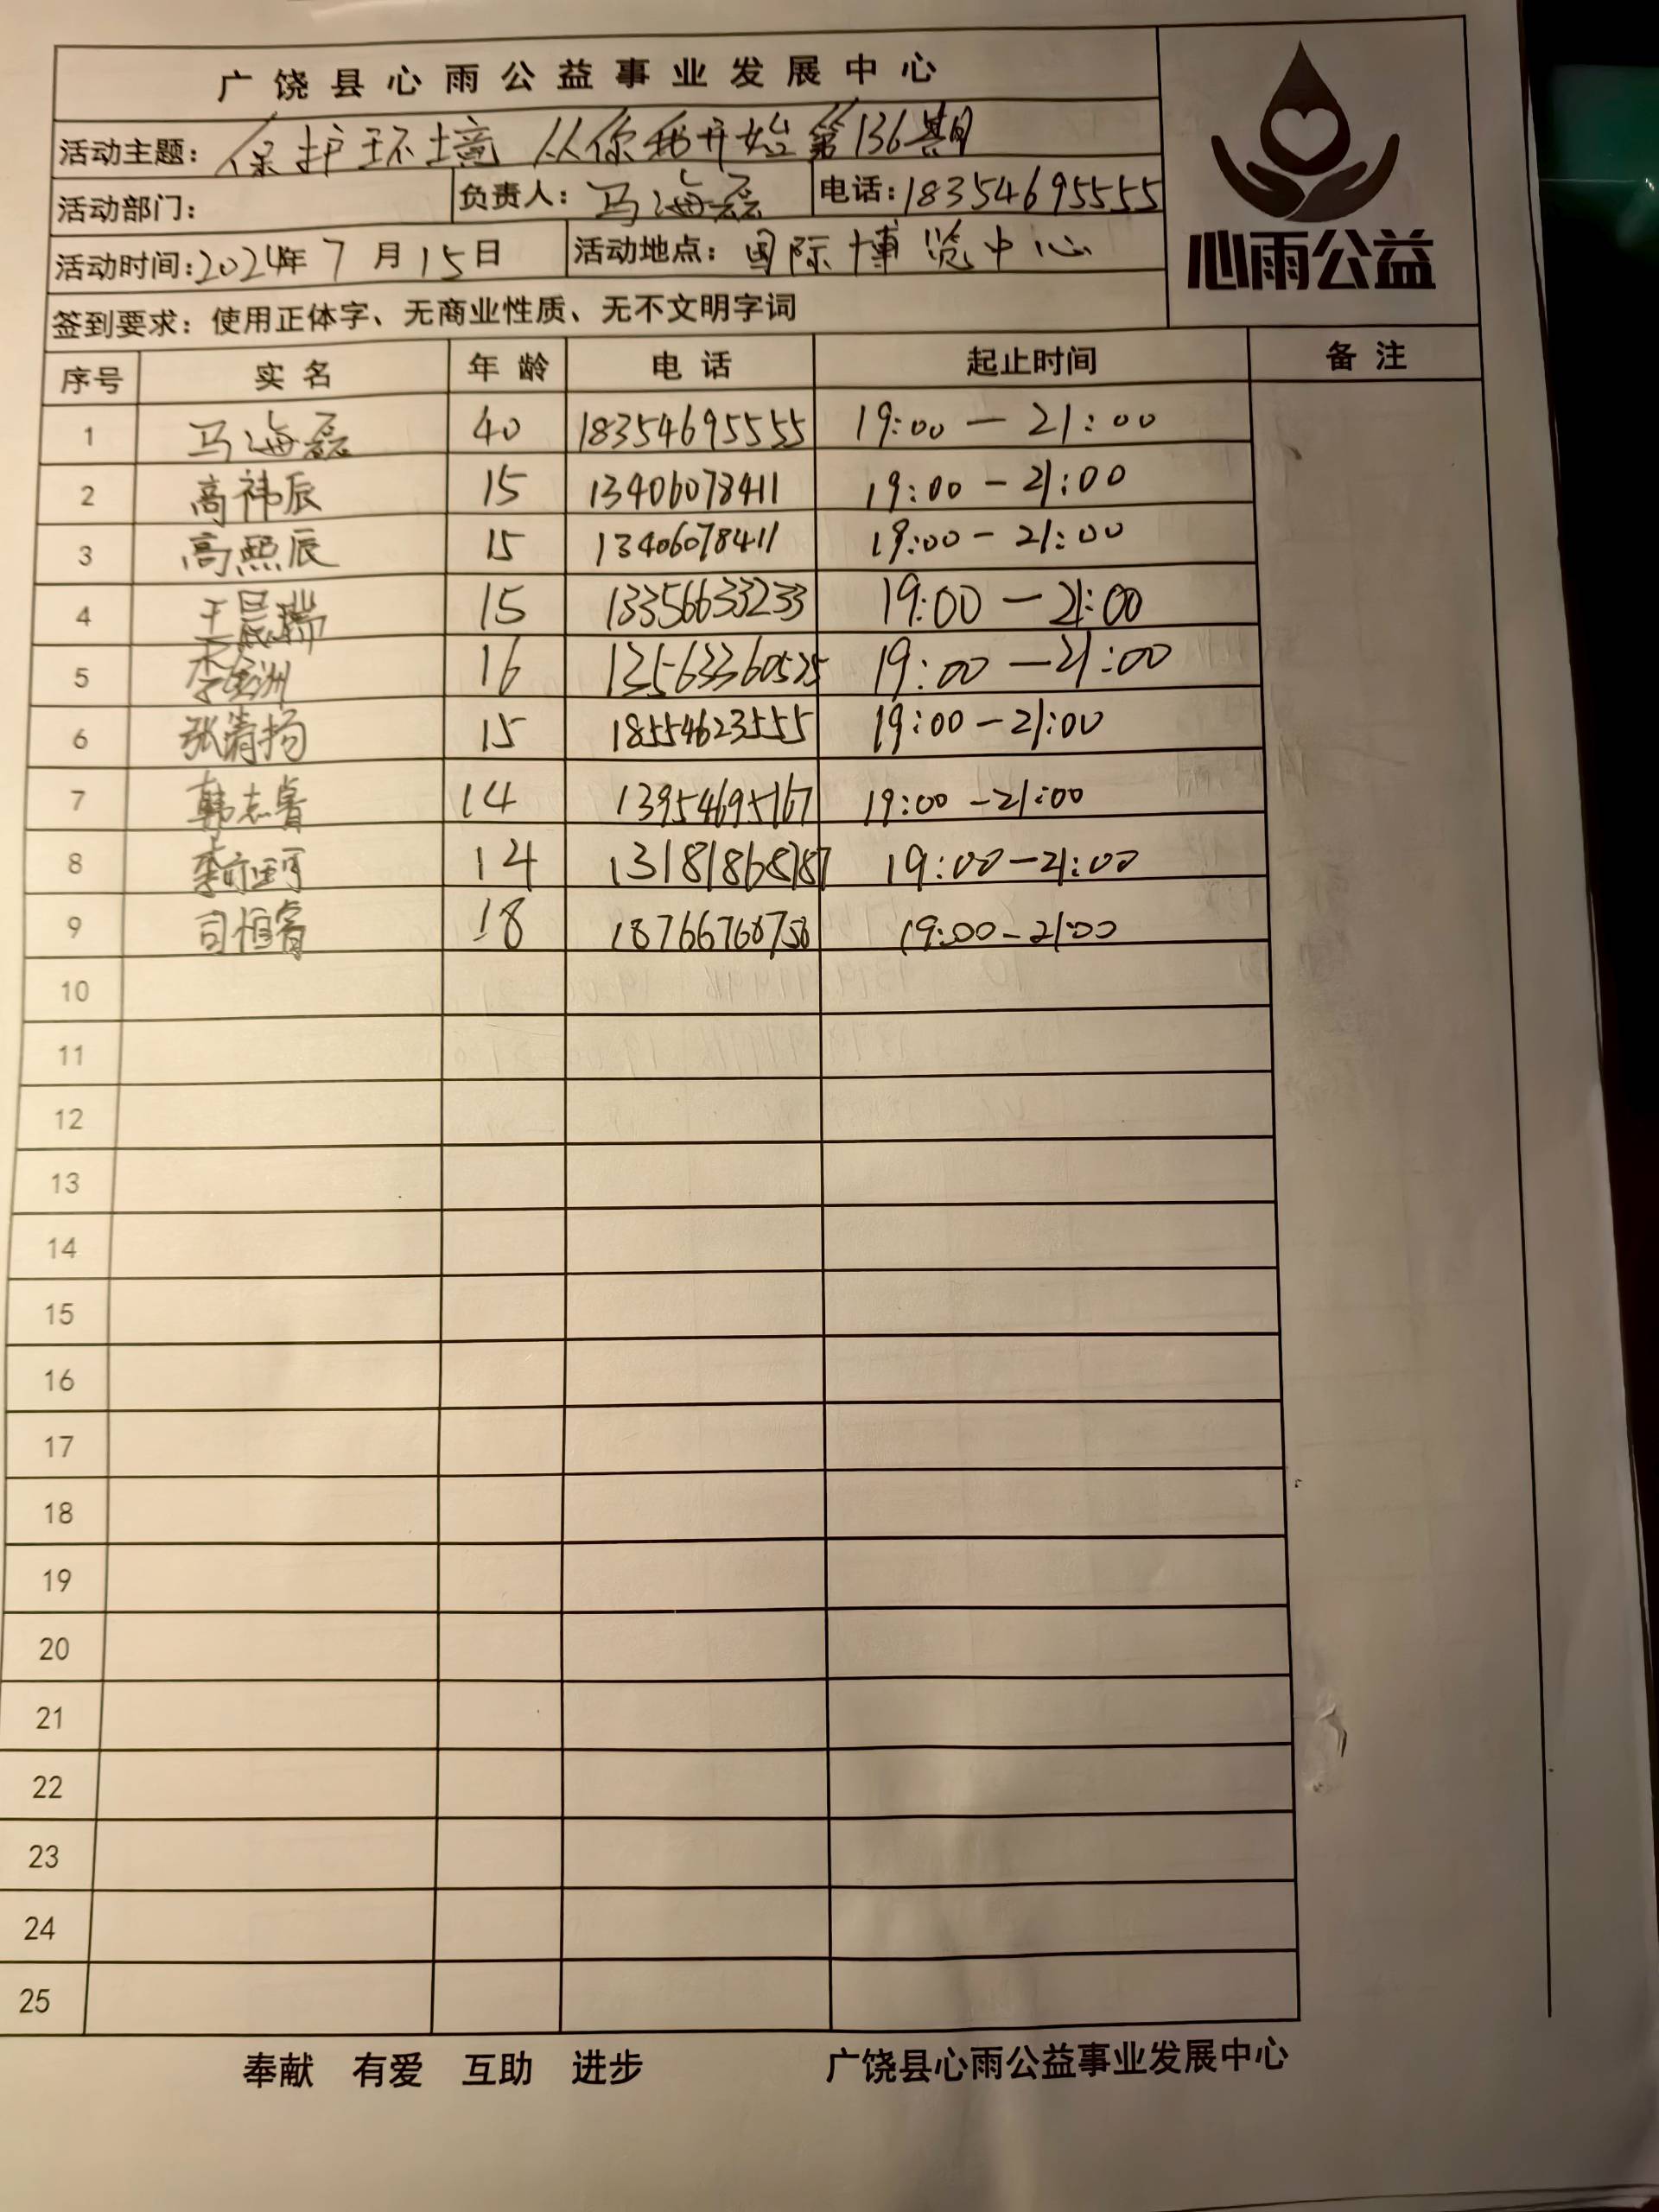 广饶县心雨公益事业发展中心
活动主题：保护环境 从你我开始第136期
活动部门： 负责人：马海磊 电话：18354695555
活动时间：2024年7月15日 活动地点：国际博览中心
心雨公益
签到要求：使用正体字、无商业性质、无不文明字词
序号 实名 年龄 电话 起止时间 备注
1 马海磊 40 18354695555 19:00 — 21:00
2 高祎辰 15 13406078411 19:00 — 21:00
3 高熙辰 15 13406078411 19:00 — 21:00
4 王晨瑞 15 13356633233 19:00 — 21:00
5 16 19:00 — 21:00
6 张清扬 15 18554623555 19:00 — 21:00
7 韩志睿 14 13954695167 19:00 — 21:00
8 14 13181868787 19:00 — 21:00
9 司恒睿 18 18766768758 19:00 — 21:00
10
11
12
13
14
15
16
17
18
19
20
21
22
23
24
25
奉献 有爱 互助 进步 广饶县心雨公益事业发展中心